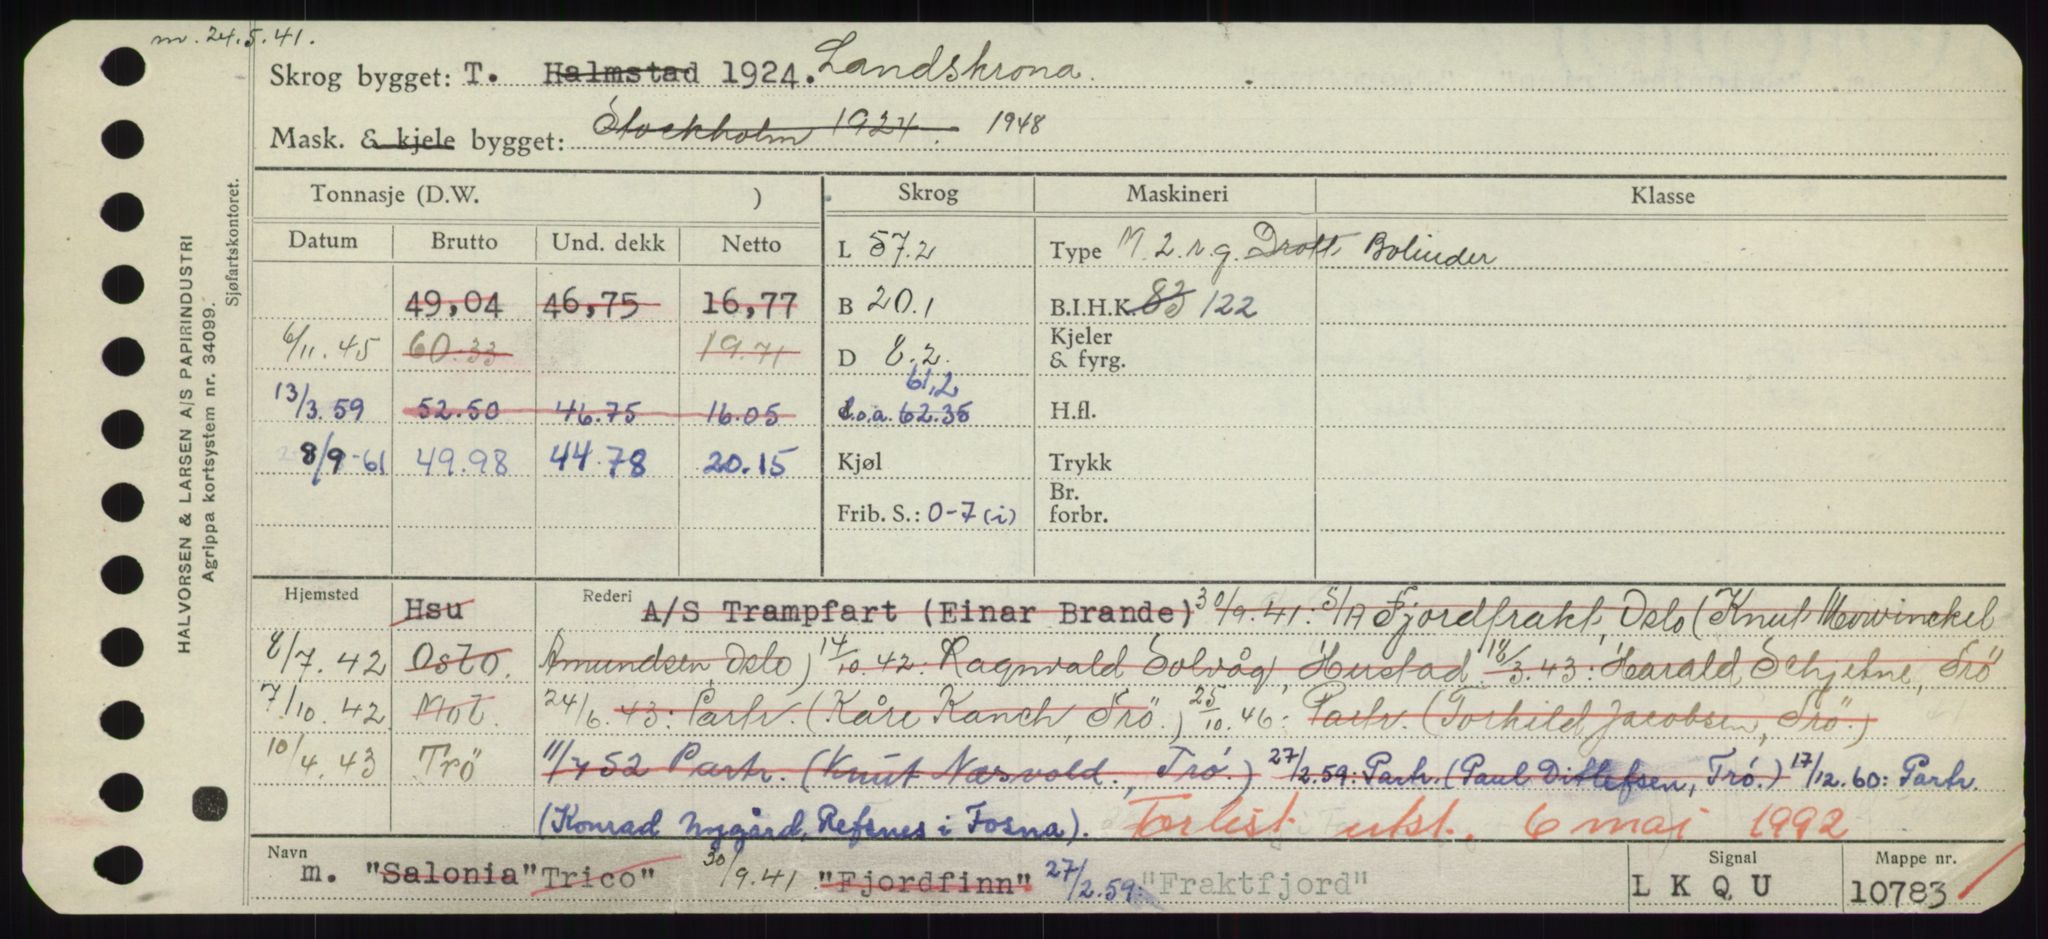 m. 24.5.41.
Skrog bygget: T. Halmstad 1924. Landskrona.
Mask. & kjele bygget: Stockholm 1924. 1948
Tonnasje (D.W. ) Skrog Maskineri Klasse
Datum Brutto Und. dekk Netto L 57.2 Type M. 2.r.g. Drott Bolinder
49,04 46,75 16,77 B 20.1 B.I.H.K. 83 122
6/11.45 60.33 19.71 D 8.2. Kjeler & fyrg.
61,2
13/3.59 52.50 46.75 16.05 l.o.a. 62.35 H.fl.
8/9-61 49.98 44.78 20.15 Kjøl Trykk
Frib. S.: 0-7 (i) Br. forbr.
Hjemsted Hsu Rederi A/S Trampfart (Einar Brande) 30/9.41: S/A Fjordfrakt, Oslo (Knut Mowinckel
8/7.42 Oslo. Amundsen, Oslo) 14/10.42: Ragnvald Solvåg, Hustad. 18/3.43: Harald Schjetne, Trö
7/10.42 Mol. 24/6.43: Partr. (Kåre Kanch, Trö.) 25/10.46: Partr. (Torhild Jacobsen, Trö.)
10/4.43 Trö 11/7 52 Partr. (Knut Næsvold., Trö.) 27/2.59: Partr. (Paul Ditlefsen, Trö.) 17/12.60: Partr.
(Konrad Nygård, Refsnes i Fosna). Forlist utst. 6 mai 1992
Navn m. "Salonia" Trico" 30/9.41 "Fjordfinn" 27/2.59: "Fraktfjord"
Signal L K Q U
Mappe nr. 10783
HALVORSEN & LARSEN A/S PAPIRINDUSTRI
Agrippa kortsystem nr. 34099.
Sjøfartskontoret.